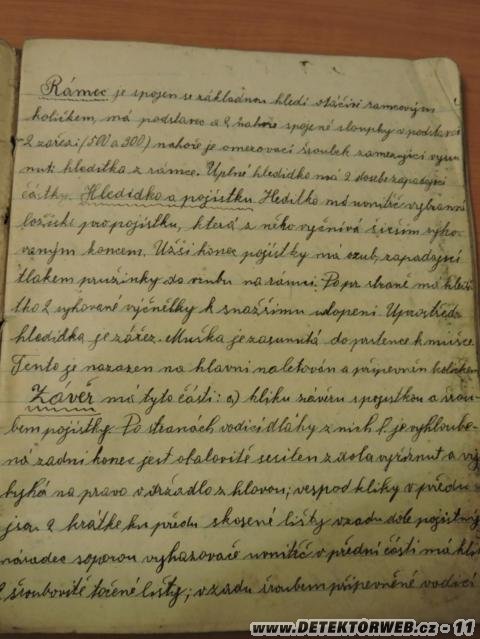 Rámec je spojen se základnou hledí otáčivě ramcovým
kolíčkem, má podstavec a 2 nahoře spojené sloupky v podstavci
2 zářezi (500 a 300) nahoře je omezovací šroubek zamezující vysu-
nutí hledítka z rámce. Uplné hledidko má 2 do sebe zapadající
částky. Hledidko a pojistku. Hedítko má uvnitř vybranné
ložisko pro pojistku, která z něho vyčnívá širším ryho-
vaným koncem. Užší konec pojistky má ozub, zapadající
tlakem pružinky do vrubu na rámci. Po pr. straně má hledí-
tko 2 ryhované výčnělky k snažšímu uchopeni. Uprostřed
hledidka je zářez. Muška je zasunutá do prstence k mušce.
Tento je nazazen na hlavni naletován a připevněn kolíčkem
Závěr má tyto části: a) kliku závěru s pojistkou a šrou-
bem pojistky. Po stranách vodicí dláhy z nich l. je vyhloube-
ná zadní konec jest obalovitě sesílen z dola vyříznut a vy-
bíhá na pravo v držadlo z hlavou; vespod kliky v předu
jsou 2 krátké ku předu skosené lišty vzadu dole pojistný
násadec s oporou vyhazovače uvnitř v přední části má kli
2 šroubovité točené lišty; vzadu šroubem připevněné vodicí
www.DETEKTORWEB.cz - 11